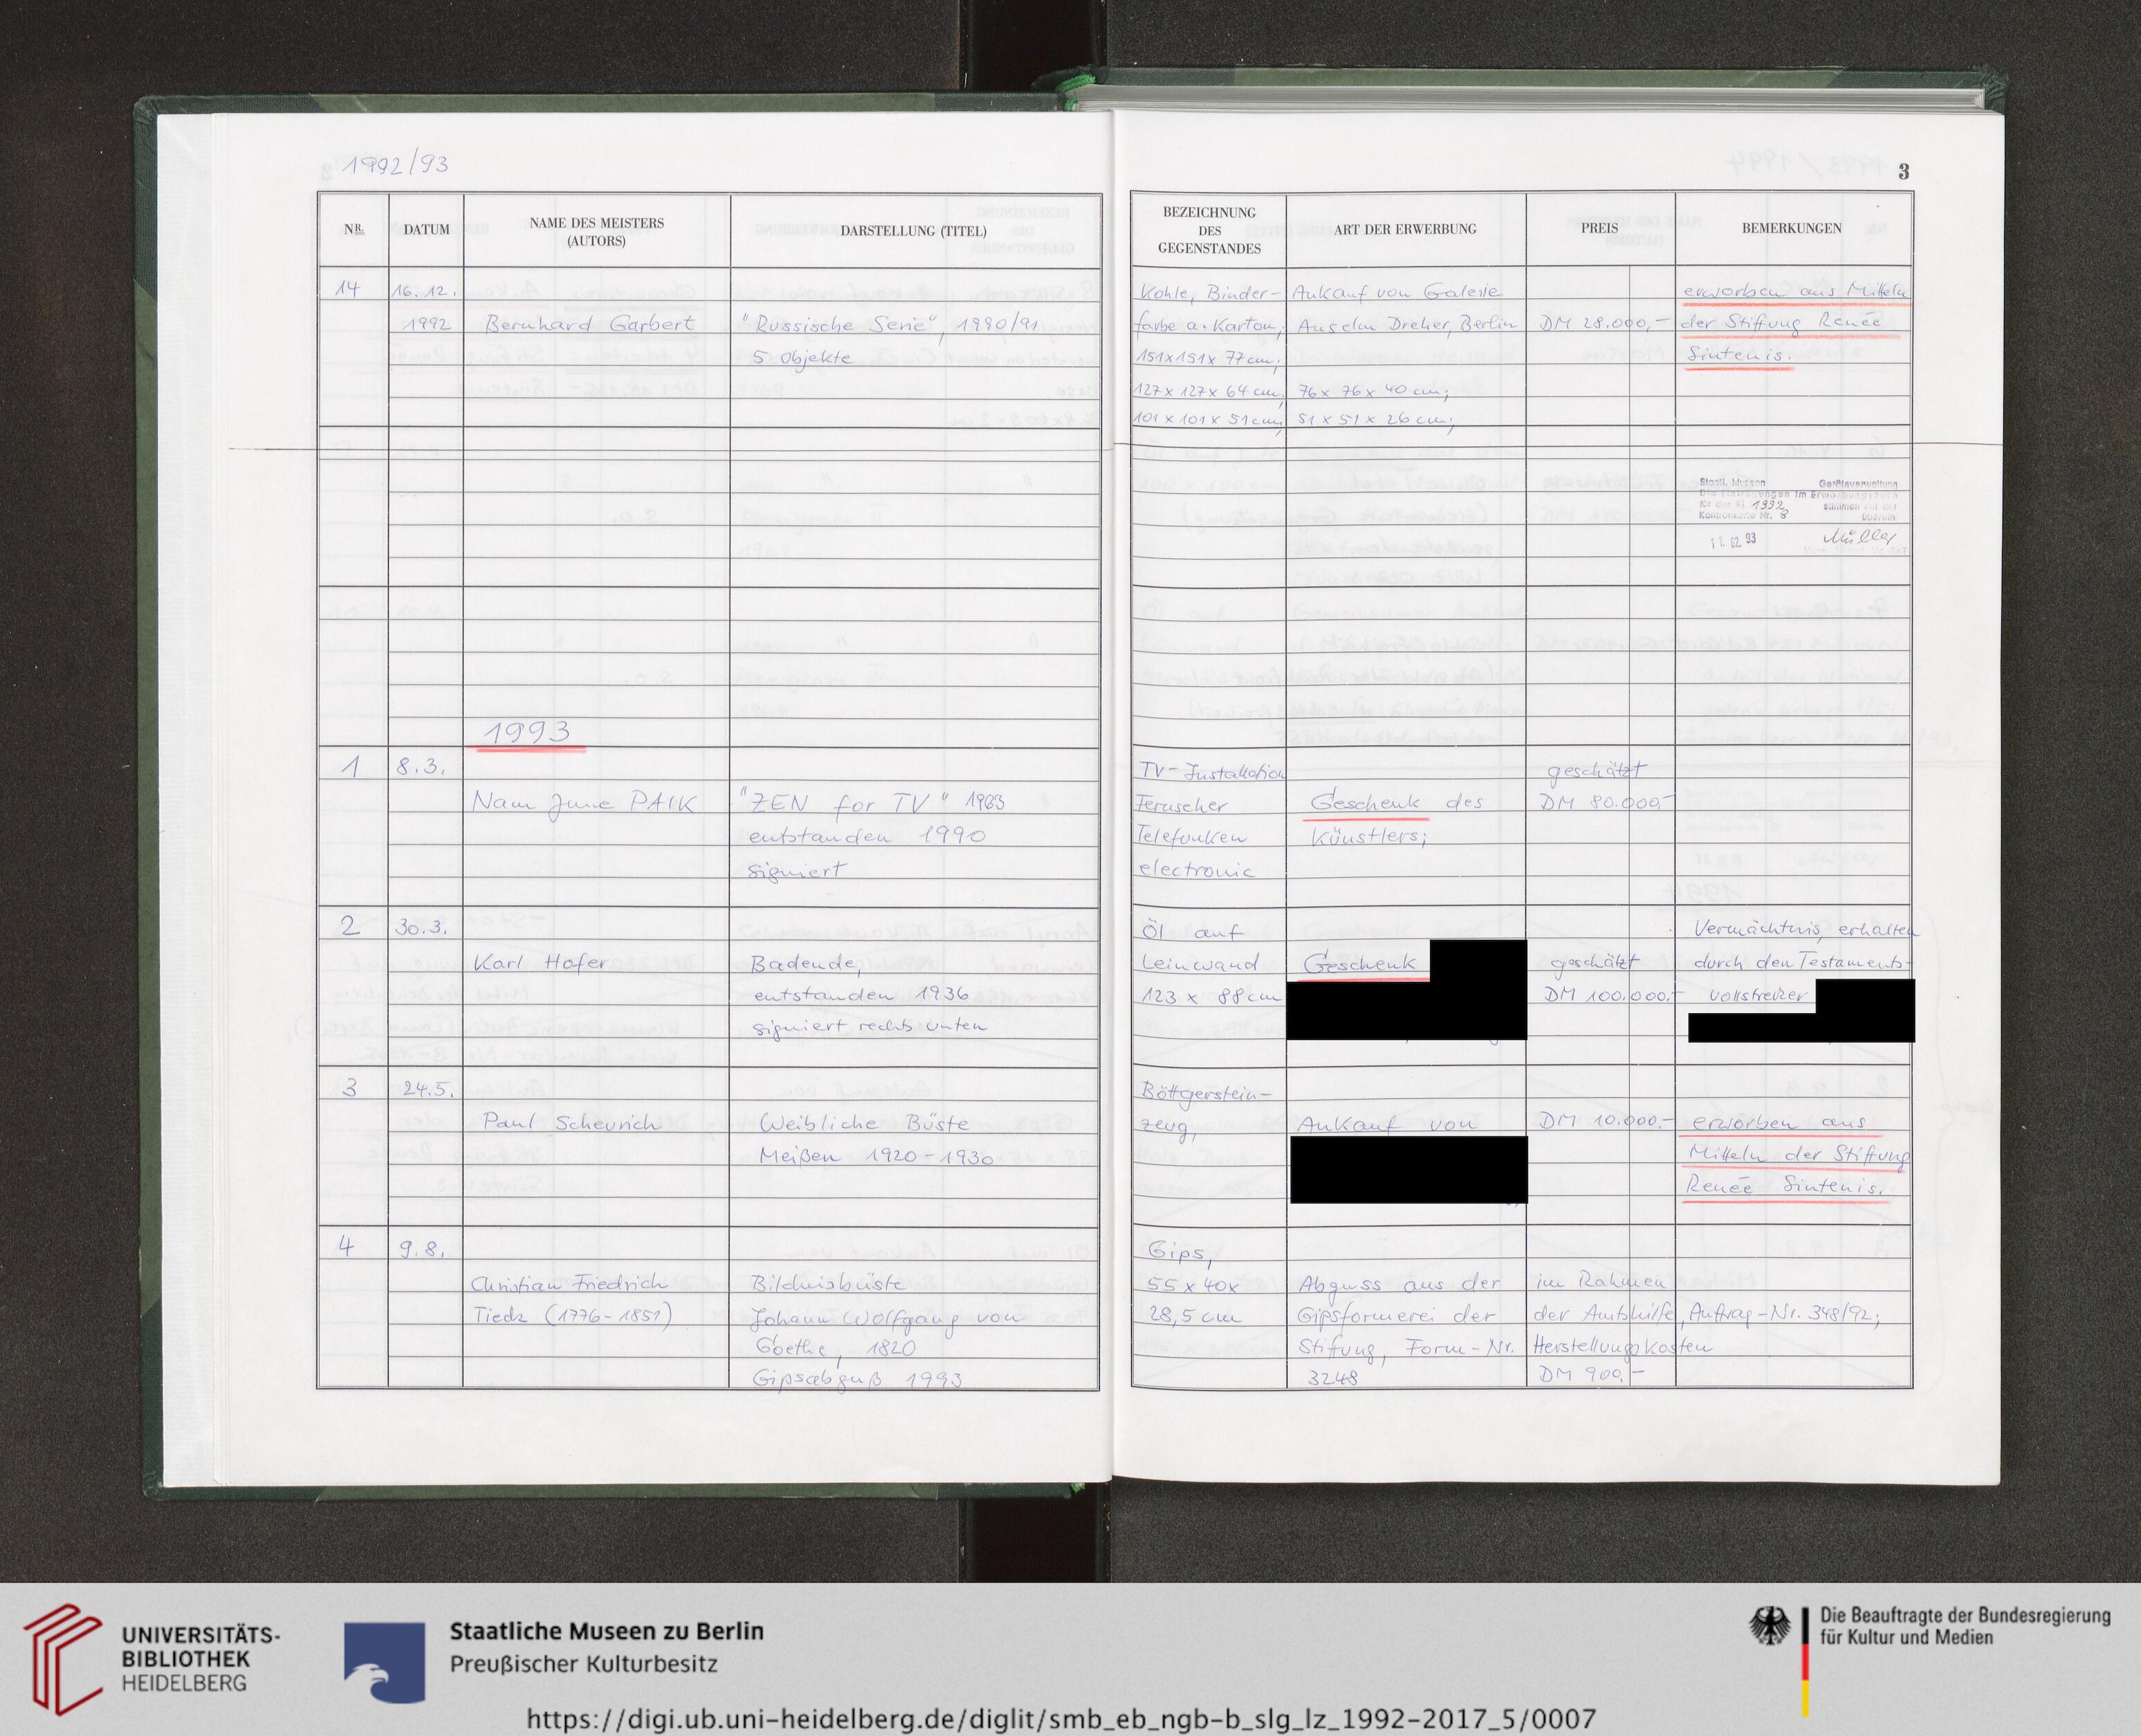 1992/93
3
NR. DATUM NAME DES MEISTERS (AUTORS) DARSTELLUNG (TITEL) BEZEICHNUNG DES GEGENSTANDES ART DER ERWERBUNG PREIS BEMERKUNGEN
14 16.12. Kohle, Binder- Ankauf von Galerie erworben aus Mitteln
1992 Bernhard Garbert "Russische Serie", 1990/91 farbe a. Karton, Anselm Dreher, Berlin DM 28.000,- der Stiftung Renée
5 Objekte 151x151x 77cm; Sintenis.
127x 127x 64 cm; 76x 76x 40 cm;
101 x 101 x 51cm; 51 x 51 x 26 cm;
Staatl. Museen Geräteverwaltung
Die Eintragungen im Erwerbungsbuch
für das Rj. 1992 stimmen mit der
Kontrollkarte Nr. 8 überein
11.02.93 Müller
1993
1 8.3. TV-Installation geschätzt
Nam June PAIK "ZEN for TV" 1963 Fernseher Geschenk des DM 80.000,-
entstanden 1990 Telefunken Künstlers;
signiert electronic
2 30.3. Öl auf Vermächtnis, erhalten
Karl Hofer Badende, Leinwand Geschenk geschätzt durch den Testaments-
entstanden 1936 123 x 88cm DM 100.000.- vollstrecker
signiert rechts unten
3 24.5. Böttgerstein-
Paul Scheurich Weibliche Büste zeug, Ankauf von DM 10.000.- erworben aus
Meißen 1920-1930 Mitteln der Stiftung
Renée Sintenis.
4 9.8. Gips,
Christian Friedrich Bildnisbüste 55 x 40x Abguss aus der im Rahmen
Tieck (1776-1851) Johann Wolfgang von 28,5 cm Gipsformerei der der Amtshilfe, Auftrag-Nr. 348/92;
Goethe, 1820 Stiftung, Form-Nr. Herstellungskosten
Gipsabguß 1993 3248 DM 900,-
UNIVERSITÄTS-
BIBLIOTHEK
HEIDELBERG
Staatliche Museen zu Berlin
Preußischer Kulturbesitz
Die Beauftragte der Bundesregierung
für Kultur und Medien
https://digi.ub.uni-heidelberg.de/diglit/smb_eb_ngb-b_slg_lz_1992-2017_5/0007